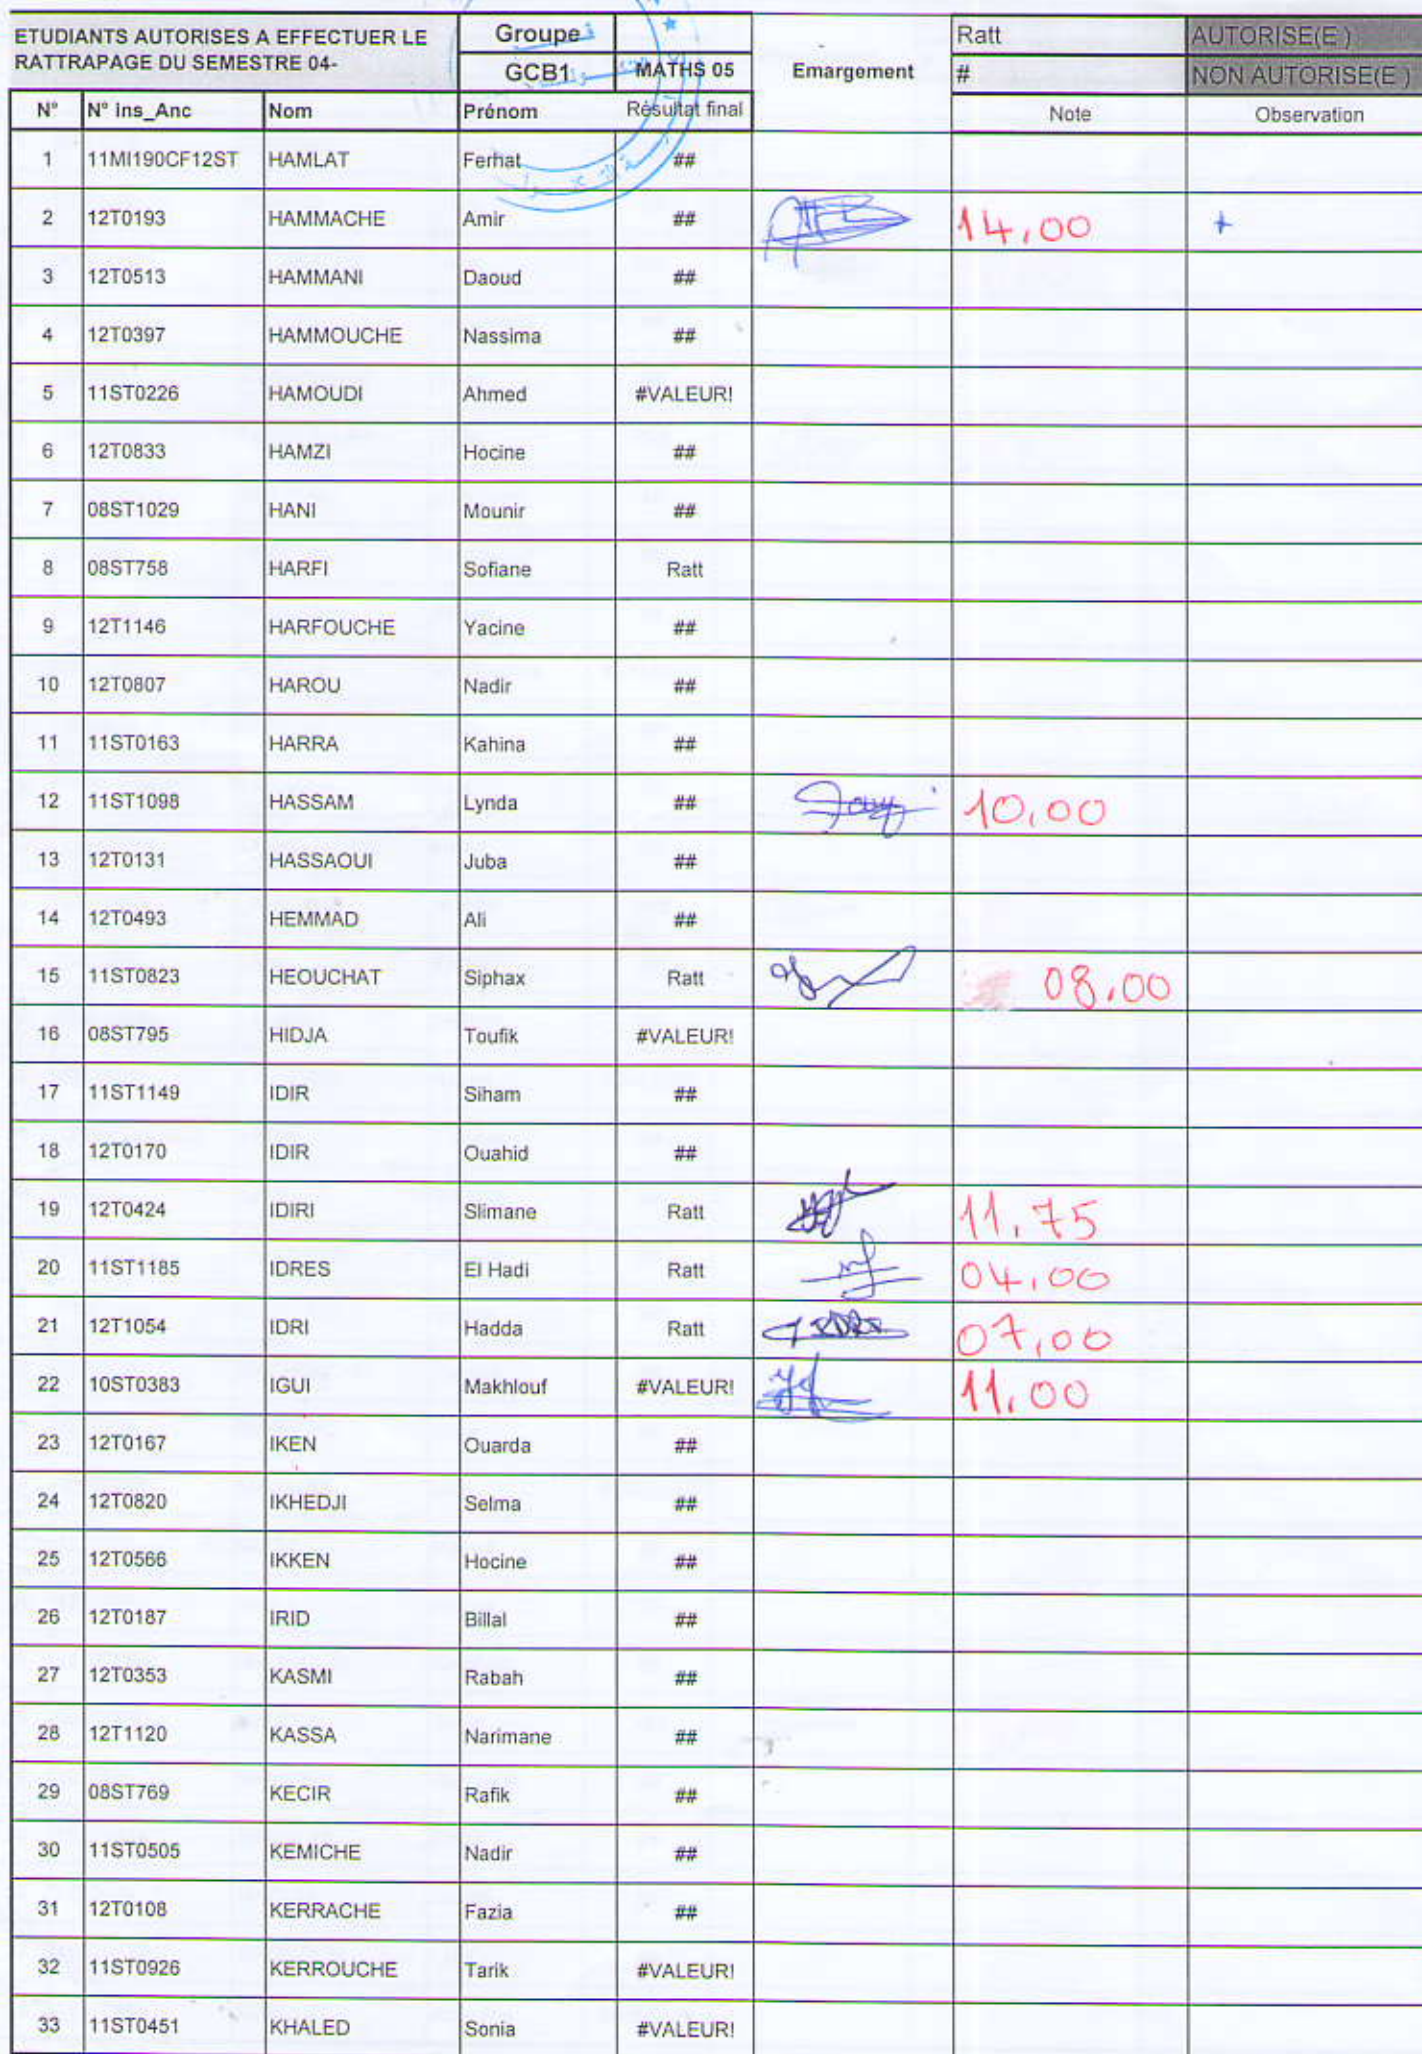 ETUDIANTS AUTORISES A EFFECTUER LE RATTRAPAGE DU SEMESTRE 04-
Groupe
GCB1 MATHS 05
Emargement
Ratt AUTORISE(E )
# NON AUTORISE(E )
N° N° ins_Anc Nom Prénom Résultat final Note Observation
1 11MI190CF12ST HAMLAT Ferhat ##
2 12T0193 HAMMACHE Amir ## 14,00 +
3 12T0513 HAMMANI Daoud ##
4 12T0397 HAMMOUCHE Nassima ##
5 11ST0226 HAMOUDI Ahmed #VALEUR!
6 12T0833 HAMZI Hocine ##
7 08ST1029 HANI Mounir ##
8 08ST758 HARFI Sofiane Ratt
9 12T1146 HARFOUCHE Yacine ##
10 12T0807 HAROU Nadir ##
11 11ST0163 HARRA Kahina ##
12 11ST1098 HASSAM Lynda ## 10,00
13 12T0131 HASSAOUI Juba ##
14 12T0493 HEMMAD Ali ##
15 11ST0823 HEOUCHAT Siphax Ratt 08,00
16 08ST795 HIDJA Toufik #VALEUR!
17 11ST1149 IDIR Siham ##
18 12T0170 IDIR Ouahid ##
19 12T0424 IDIRI Slimane Ratt 11,75
20 11ST1185 IDRES El Hadi Ratt 04,00
21 12T1054 IDRI Hadda Ratt 07,00
22 10ST0383 IGUI Makhlouf #VALEUR! 11,00
23 12T0167 IKEN Ouarda ##
24 12T0820 IKHEDJI Selma ##
25 12T0566 IKKEN Hocine ##
26 12T0187 IRID Billal ##
27 12T0353 KASMI Rabah ##
28 12T1120 KASSA Narimane ##
29 08ST769 KECIR Rafik ##
30 11ST0505 KEMICHE Nadir ##
31 12T0108 KERRACHE Fazia ##
32 11ST0926 KERROUCHE Tarik #VALEUR!
33 11ST0451 KHALED Sonia #VALEUR!